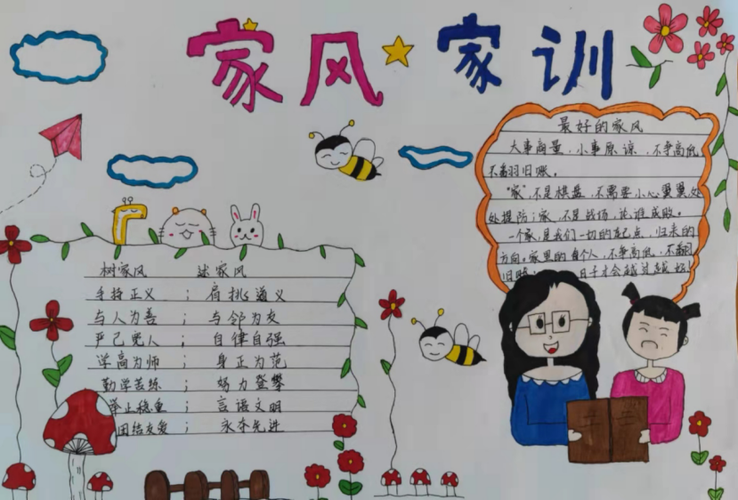 家风家训
最好的家风
大事商量,小事原谅,不争高低
不翻旧账。
"家",不是棋盘,不需要小心翼翼,处
处提防;家,不是战场,论谁成败。
一个家,是我们一切的起点,归来的
方向,家里的每个人,不争高低,不翻
旧账,日子才会越过越好!
树家风 述家风
手持正义;肩挑道义
与人为善;与邻为友
严己宽人;自律自强
学高为师;身正为范
勤学苦练;努力登攀
举止稳重;言语文明
团结友爱;永夺先进